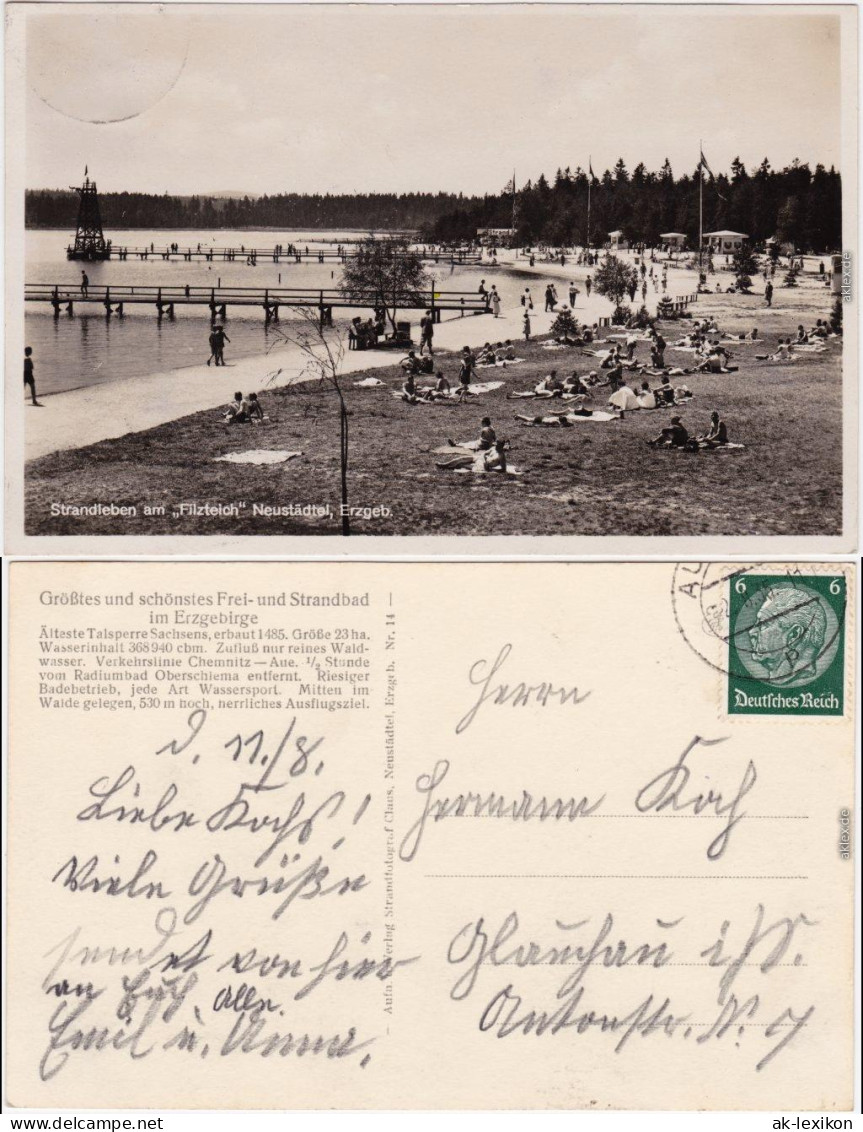 Strandleben am „Filzteich" Neustädtel, Erzgeb.
aklexikon.de
Größtes und schönstes Frei- und Strandbad
im Erzgebirge
Älteste Talsperre Sachsens, erbaut 1485. Größe 23 ha.
Wasserinhalt 368940 cbm. Zufluß nur reines Wald-
wasser. Verkehrslinie Chemnitz — Aue. ½ Stunde
vom Radiumbad Oberschlema entfernt. Riesiger
Badebetrieb, jede Art Wassersport. Mitten im
Walde gelegen, 530 m hoch, herrliches Ausflugsziel.
d. 11./8.
Liebe Kochs!
Viele Grüße
sendet von hier
an Euch Allen.
Emil u. Anna.
– Aufn. Verlag Strandfotograf Claus, Neustädtel, Erzgeb. Nr. 14 –
AU
6 6
Deutsches Reich
Herrn
Hermann Koch
Glauchau i/S.
Antonstr. N. 7
aklexikon.de
www.delcampe.net
ak-lexikon